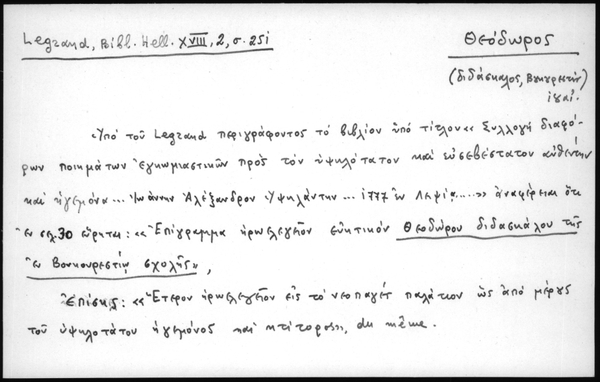 Legrand, Bibl. Hell. XVIII, 2, σ. 251
Θεόδωρος
(διδάσκαλος, Βουκουρεστίου)
Ὑπὸ τοῦ Legrand περιγράφοντος τὸ βιβλίον ὑπὸ τίτλον «Συλλογὴ διαφό-
ρων ποιημάτων ἐγκωμιαστικῶν πρὸς τὸν ὑψηλότατον καὶ εὐσεβέστατον αὐθέντην
καὶ ἡγεμόνα... Ἰωάννην Ἀλέξανδρον Ὑψηλάντην... 1777 ἐν Λειψίᾳ.....» ἀναφέρεται ὅτι
ἐν σελ. 30 εὕρηται: «Ἐπίγραμμα ἡρωελεγεῖον εὐκτικόν Θεοδώρου διδασκάλου τῆς
ἐν Βουκουρεστίῳ σχολῆς»,
Ἐπίσης: «Ἕτερον ἡρωελεγεῖον εἰς τὸ νεοπαγές παλάτιον ὡς ἀπό μέρους
τοῦ ὑψηλοτάτου ἡγεμόνος καὶ κτίτορος», du même.